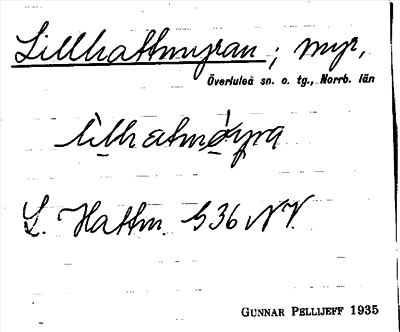 Lillhattmyran; myr,
Överluleå sn. o. tg., Norrb. län
L. Hattm. G36 NV.
GUNNAR PELLIJEFF 1935